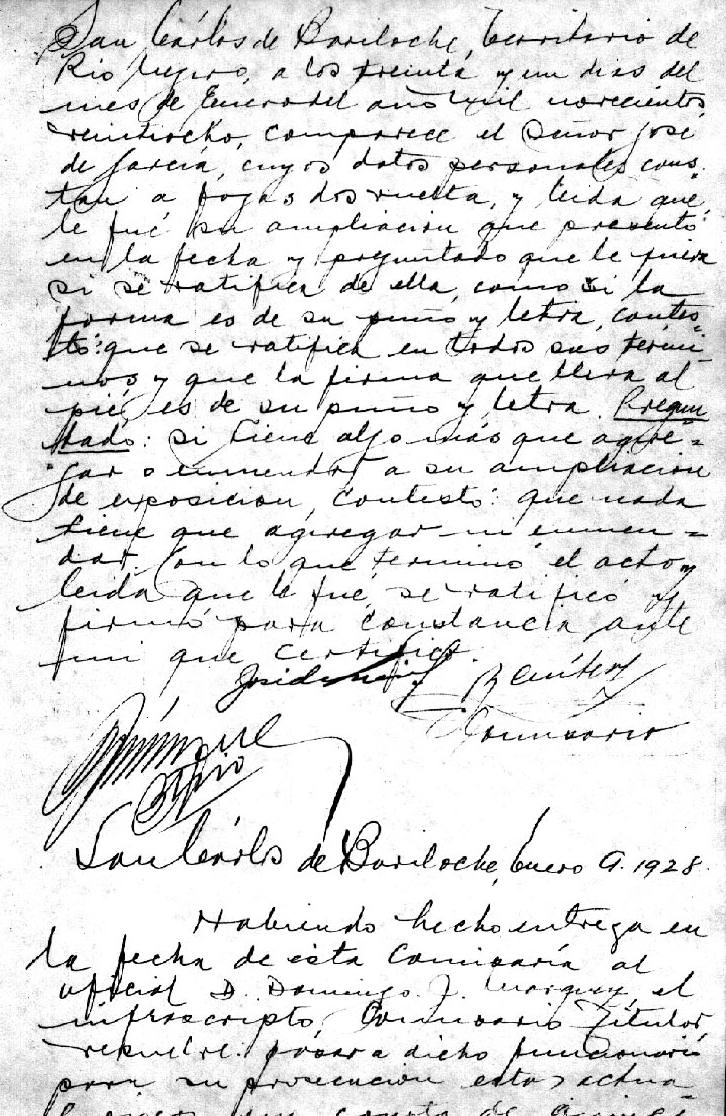 San Cárlos de Bariloche, Territorio de
Rio Negro, a los treinta y un dias del
mes de Enero del año mil novecientos
veintiocho, comparece el Señor José
de García, cuyos datos personales cons-
tan a fojas dos vuelta, y leida que
le fué su ampliacion que presentó
en la fecha y preguntado que le fuera
si se ratifica de ella, como si la
forma es de su puño y letra, contes-
tó: que se ratifica en todos sus térmi-
nos y que la firma que lleva al
pié, es de su puño y letra. Pregun
tado: si tiene algo más que agre-
gar o enmendar a su ampliacion
de exposicion, contestó: que nada
tiene que agregar ni enmen-
dar. Con lo que terminó el acto y
leida que le fué, se ratificó y
firmó para constancia ante
mi que certifico.
José de
Comisario
San Cárlos de Bariloche, Enero 9. 1928.
Habiendo hecho entrega en
la fecha de esta Comisaría al
oficial D. Domingo J. el
infrascripto, Comisario Titular,
resuelve: pasar a dicho funcionario
para su prosecucion estas actua-